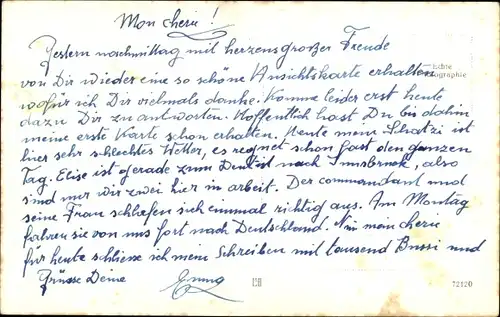 Mon cheri!
Gestern nachmittag mit herzensgroßer Freude
von Dir wieder eine so schöne Ansichtskarte erhalten
wofür ich Dir vielmals danke. Komme leider erst heute
dazu Dir zu antworten. Hoffentlich hast Du bis dahin
meine erste Karte schon erhalten. Heute mein Schatzi ist
hier sehr schlechtes Wetter, es regnet schon fast den ganzen
Tag. Elise ist gerade zum Dentist nach Innsbruck, also
sind nur wir zwei hier in arbeit. Der commandant und
seine Frau schlafen sich einmal richtig aus. Am Montag
fahren sie von uns fort nach Deutschland. Nun mon cheri
für heute schliesse ich mein Schreiben mit tausend Bussi und
Grüsse Deine
Echte
ographie
72120